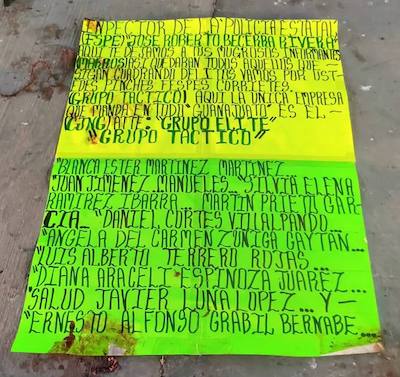 DIRECTOR DE LA POLICIA ESTATAL
(FESPE) JOSE ROBERTO BECERRA RIVERA
AQUI TE DEJAMOS A TUS MUGROSOS INFORMANTES
(MARROS) ASI QUEDARAN TODOS AQUELLOS QUE —
SIGAN CUADRANDO DELITOS VAMOS POR UST—
EDES PINCHES FESPES CORRIETES.
(GRUPO TACTICO) AQUI LA UNICA EMPRESA
QUE MANDA EN TODO "GUANAJUATO" ES EL —
(CJNG) ATTE: GRUPO ELITE"
"GRUPO TACTICO"
"BLANCA ESTER MARTINEZ MARTINEZ
"JUAN JIMENEZ MANUELES... SILVIA ELENA
RAMIREZ IBARRA... MARTIN PRIETO GAR-
CIA... "DANIEL CORTES VILLALPANDO...
"ANGELA DEL CARMEN ZUÑIGA GAYTAN...
"LUIS ALBERTO TERRERO ROJAS...
"DIANA ARACELI ESPINOZA JUAREZ...
"SALUD JAVIER LUNA LOPEZ... Y —
"ERNESTO ALFONSO GRABIL BERNABE...